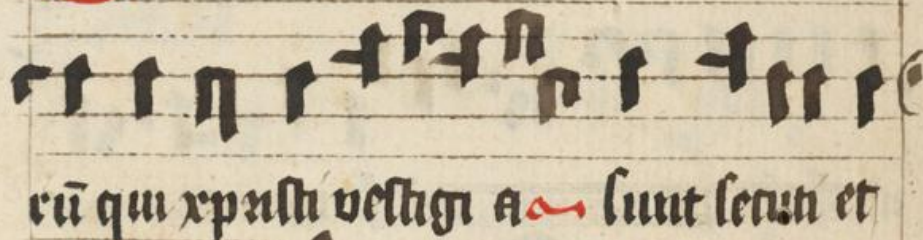 rū qui xpristi vestigi a sunt secuti et